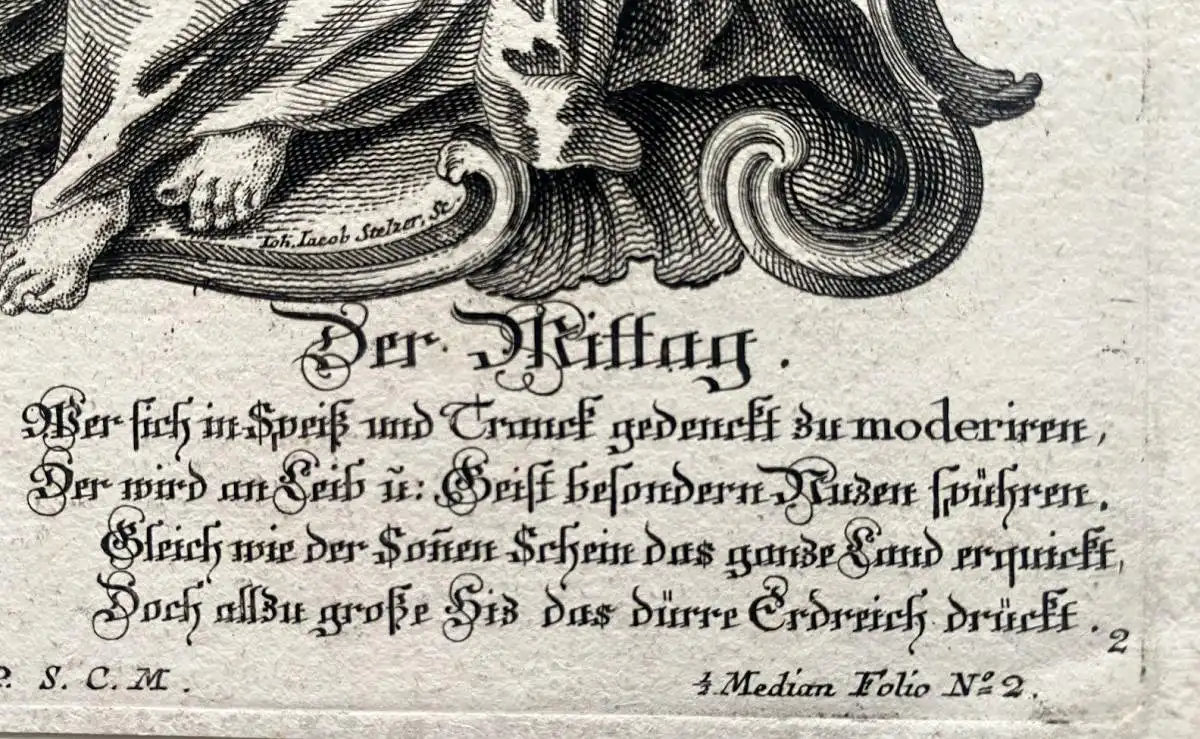 Ioh. Iacob Stelzer, Sc.
Der Mittag.
Wer sich in Speiß und Tranck gedenckt zu moderiren,
Der wird an Leib ũ: Geist besondern Nuzen spühren.
Gleich wie der Soñen Schein das ganze Land erquickt,
Doch allzu große Hiz das dürre Erdreich drückt.
2
S. C. M.
½ Median Folio Nº 2.